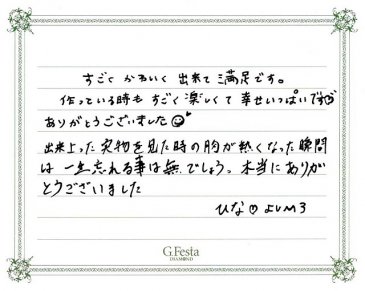 すごく かわいく 出来て 満足です。
作っている時も すごく 楽しくて 幸せいっぱいです
ありがとうございました
出来上った 実物を見た時の胸が熱くなった瞬間
は 一生忘れる事は無いでしょう。本当にありが
とうございました
ひな♡よUM3
G.Festa
DIAMOND